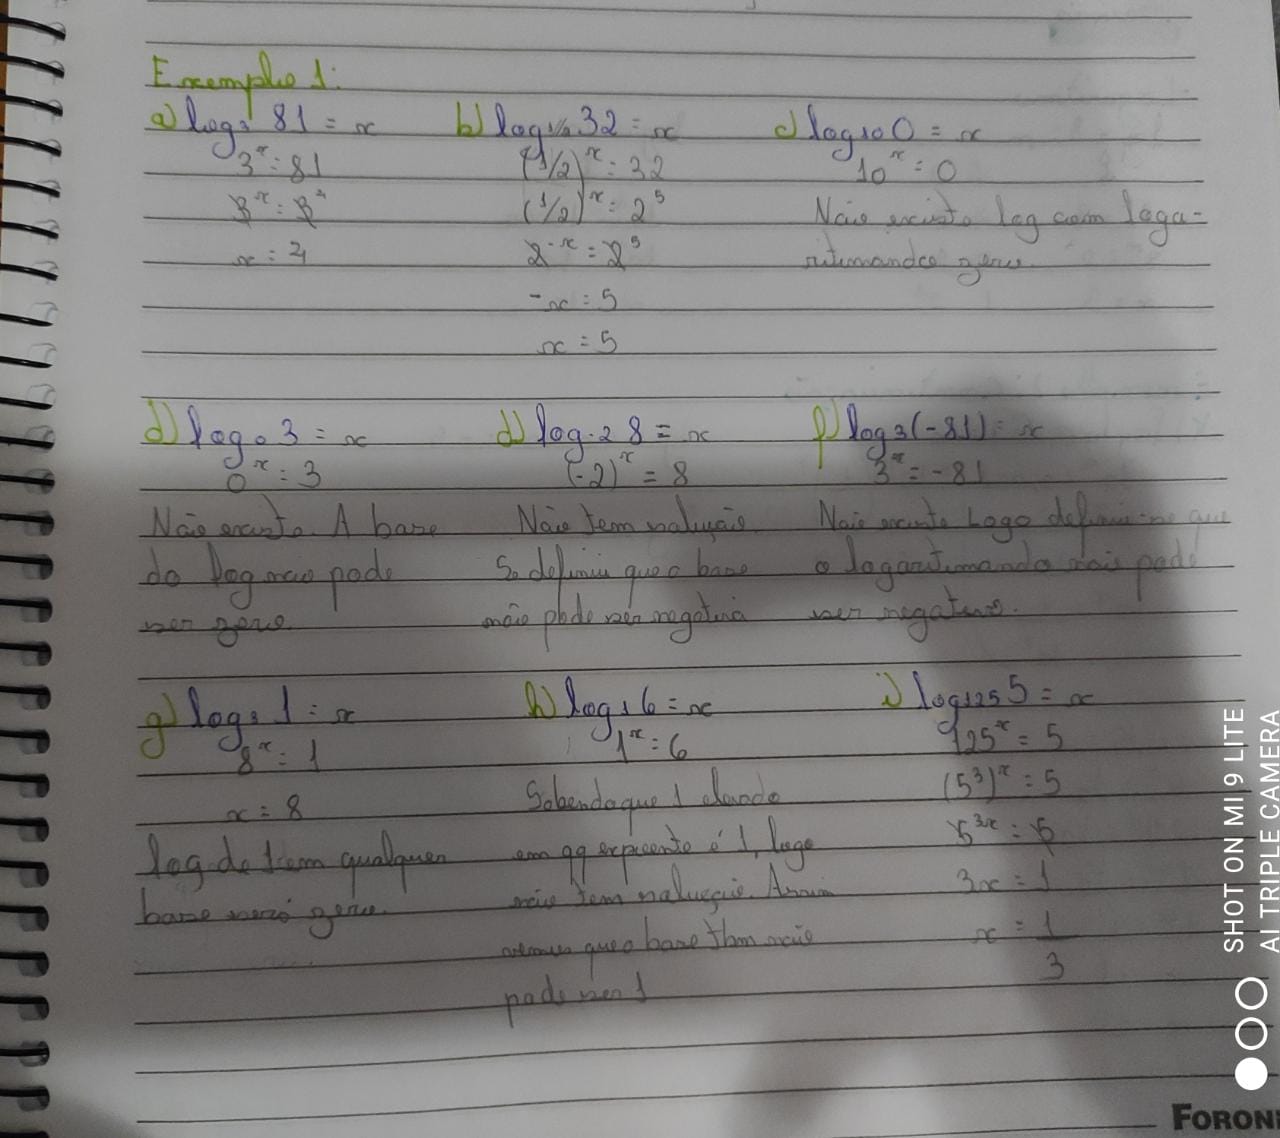 Exemplo 1:
a) log₃ 81 = x
3ˣ = 81
3ˣ = 3⁴
x = 4
b) log₁/₂ 32 = x
(1/2)ˣ = 32
(1/2)ˣ = 2⁵
2⁻ˣ = 2⁵
-x = 5
x = 5
c) log₁₀ 0 = x
10ˣ = 0
Não existe log com loga-
ritmando zero.
d) log₀ 3 = x
0ˣ = 3
Não existe. A base
do log não pode
ser zero.
d) log₋₂ 8 = x
(-2)ˣ = 8
Não tem solução.
Se definiu que a base
não pode ser negativa
f) log₃ (-81) = x
3ˣ = -81
Não existe Logo definiu-se que
o logaritmando não pode
ser negativo.
g) log₈ 1 = x
8ˣ = 1
x = 8
log de 1 em qualquer
base será zero.
h) log₁ 6 = x
1ˣ = 6
Sabendo que 1 elevado
em qq expoente é 1, logo
não tem solução. Assim
vemos que a base tbm não
pode ser 1
i) log₁₂₅ 5 = x
125ˣ = 5
(5³)ˣ = 5
5³ˣ = 5
3x = 1
x = 1
3
SHOT ON MI 9 LITE
AI TRIPLE CAMERA
FORON